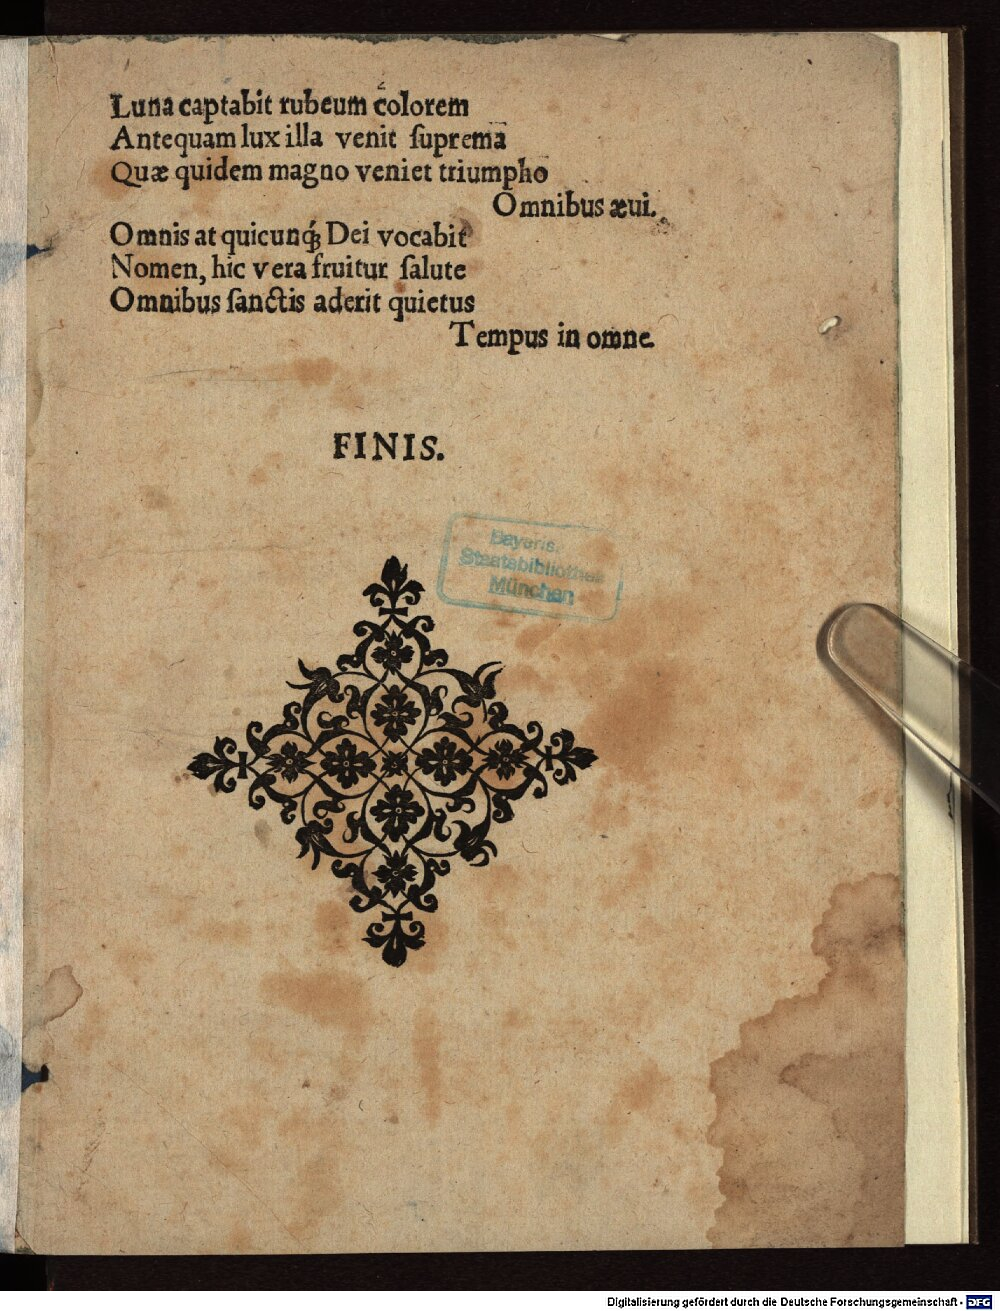 Luna captabit rubeum colorem
Antequam lux illa venit ſuprema
Quæ quidem magno veniet triumpho
Omnibus æui.
Omnis at quicunqꝫ Dei vocabit
Nomen, hic vera fruitur ſalute
Omnibus ſanctis aderit quietus
Tempus in omne.
FINIS.
Bayeris.
Staatsbibliothek
München
Digitalisierung gefördert durch die Deutsche Forschungsgemeinschaft - DFG